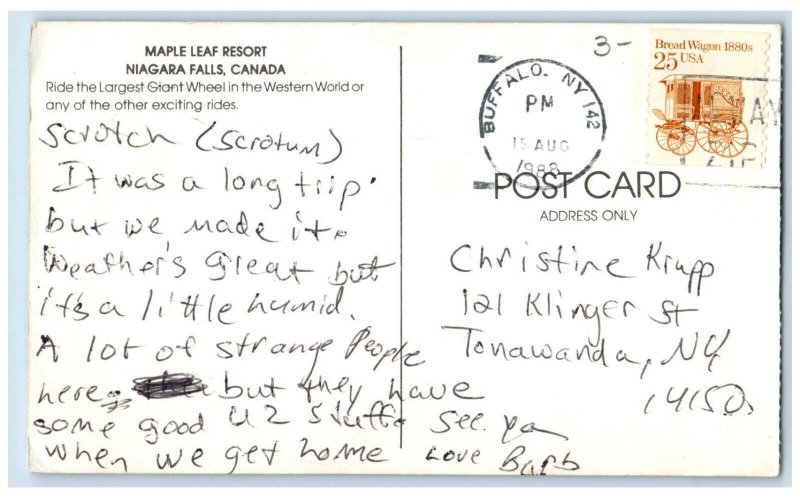 MAPLE LEAF RESORT
NIAGARA FALLS, CANADA
Ride the Largest Giant Wheel in the Western World or
any of the other exciting rides.
Scrotch (scrotum)
It was a long trip
but we made it.
Weather's great but
it's a little humid.
A lot of strange People
here. but they have
some good U2 stuff. See ya
when we get home Love Barb
3-
BUFFALO, NY 142
PM
15 AUG
1988
Bread Wagon 1880s
25 USA
POST CARD
ADDRESS ONLY
Christine Krupp
121 Klinger St
Tonawanda, NY
14150